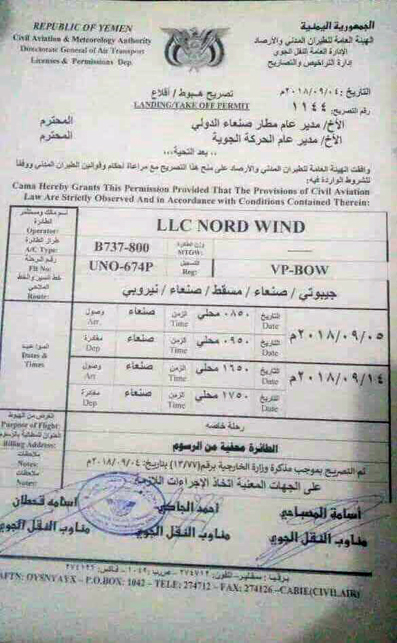 REPUBLIC OF YEMEN
Civil Aviation & Meteorology Authority
Directorate General of Air Transport
Licenses & Permissions Dep.
الجمهورية اليمنية
الهيئة العامة للطيران المدني والأرصاد
الإدارة العامة للنقل الجوي
إدارة التراخيص والتصاريح
تصريح هبوط / أقلاع
LANDING/TAKE OFF PERMIT
التاريخ : ٢٠١٨/٠٩/٠٤م
رقم التصريح: ١١٤٤
الأخ/ مدير عام مطار صنعاء الدولي المحترم
الأخ/ مدير عام الحركة الجوية المحترم
.. بعد التحية...
وافقت الهيئة العامة للطيران المدني والأرصاد على منح هذا التصريح مع مراعاة أحكام وقوانين الطيران المدني ووفقا
للشروط الواردة فيه:
Cama Hereby Grants This Permission Provided That The Provisions of Civil Aviation
Law Are Strictly Observed And in Accordance with Conditions Contained Therein:
اسم مالك ومستثمر
الطائرة
Operator:
LLC NORD WIND
طراز الطائرة
A/C Type:
B737-800
وزن الطائرة
MTGW:
رقم الرحلة
Flt No:
UNO-674P
التسجيل
Reg:
VP-BOW
خط السير والخط
الملاحي
Route:
جيبوتي / صنعاء / مسقط / صنعاء / نيروبي
المواعيد
Dates &
Times
وصول
Arr
صنعاء
الزمن
Time
٠٨٥٠ محلي
التاريخ
Date
٢٠١٨/٠٩/٠٥م
مغادرة
Dep
صنعاء
الزمن
Time
٠٩٥٠ محلي
التاريخ
Date
وصول
Arr
صنعاء
الزمن
Time
١٦٥٠ محلي
التاريخ
Date
٢٠١٨/٠٩/١٤م
مغادرة
Dep
صنعاء
الزمن
Time
١٧٥٠ محلي
التاريخ
Date
الغرض من الهبوط
Purpose of Flight:
رحلة خاصه
العنوان للمطالبة بالرسوم
Billing Address:
الطائرة معفية من الرسوم
ملاحظات
Notes:
تم التصريح بموجب مذكرة وزارة الخارجية برقم(١٣/٧٧) بتاريخ: ٢٠١٨/٠٩/٠٤م
ملاحظات
Notes:
على الجهات المعنية اتخاذ الإجراءات اللازمة
أسامة المصباحي
مناوب النقل الجوي
احمد
مناوب النقل الجوي
أسامه قحطان
مناوب النقل الجوي
AFTN: OYSNYAYX – P.O.BOX: 1042 – TELE: 274712 – FAX: 274126 –CABIE(CIVILAIR)